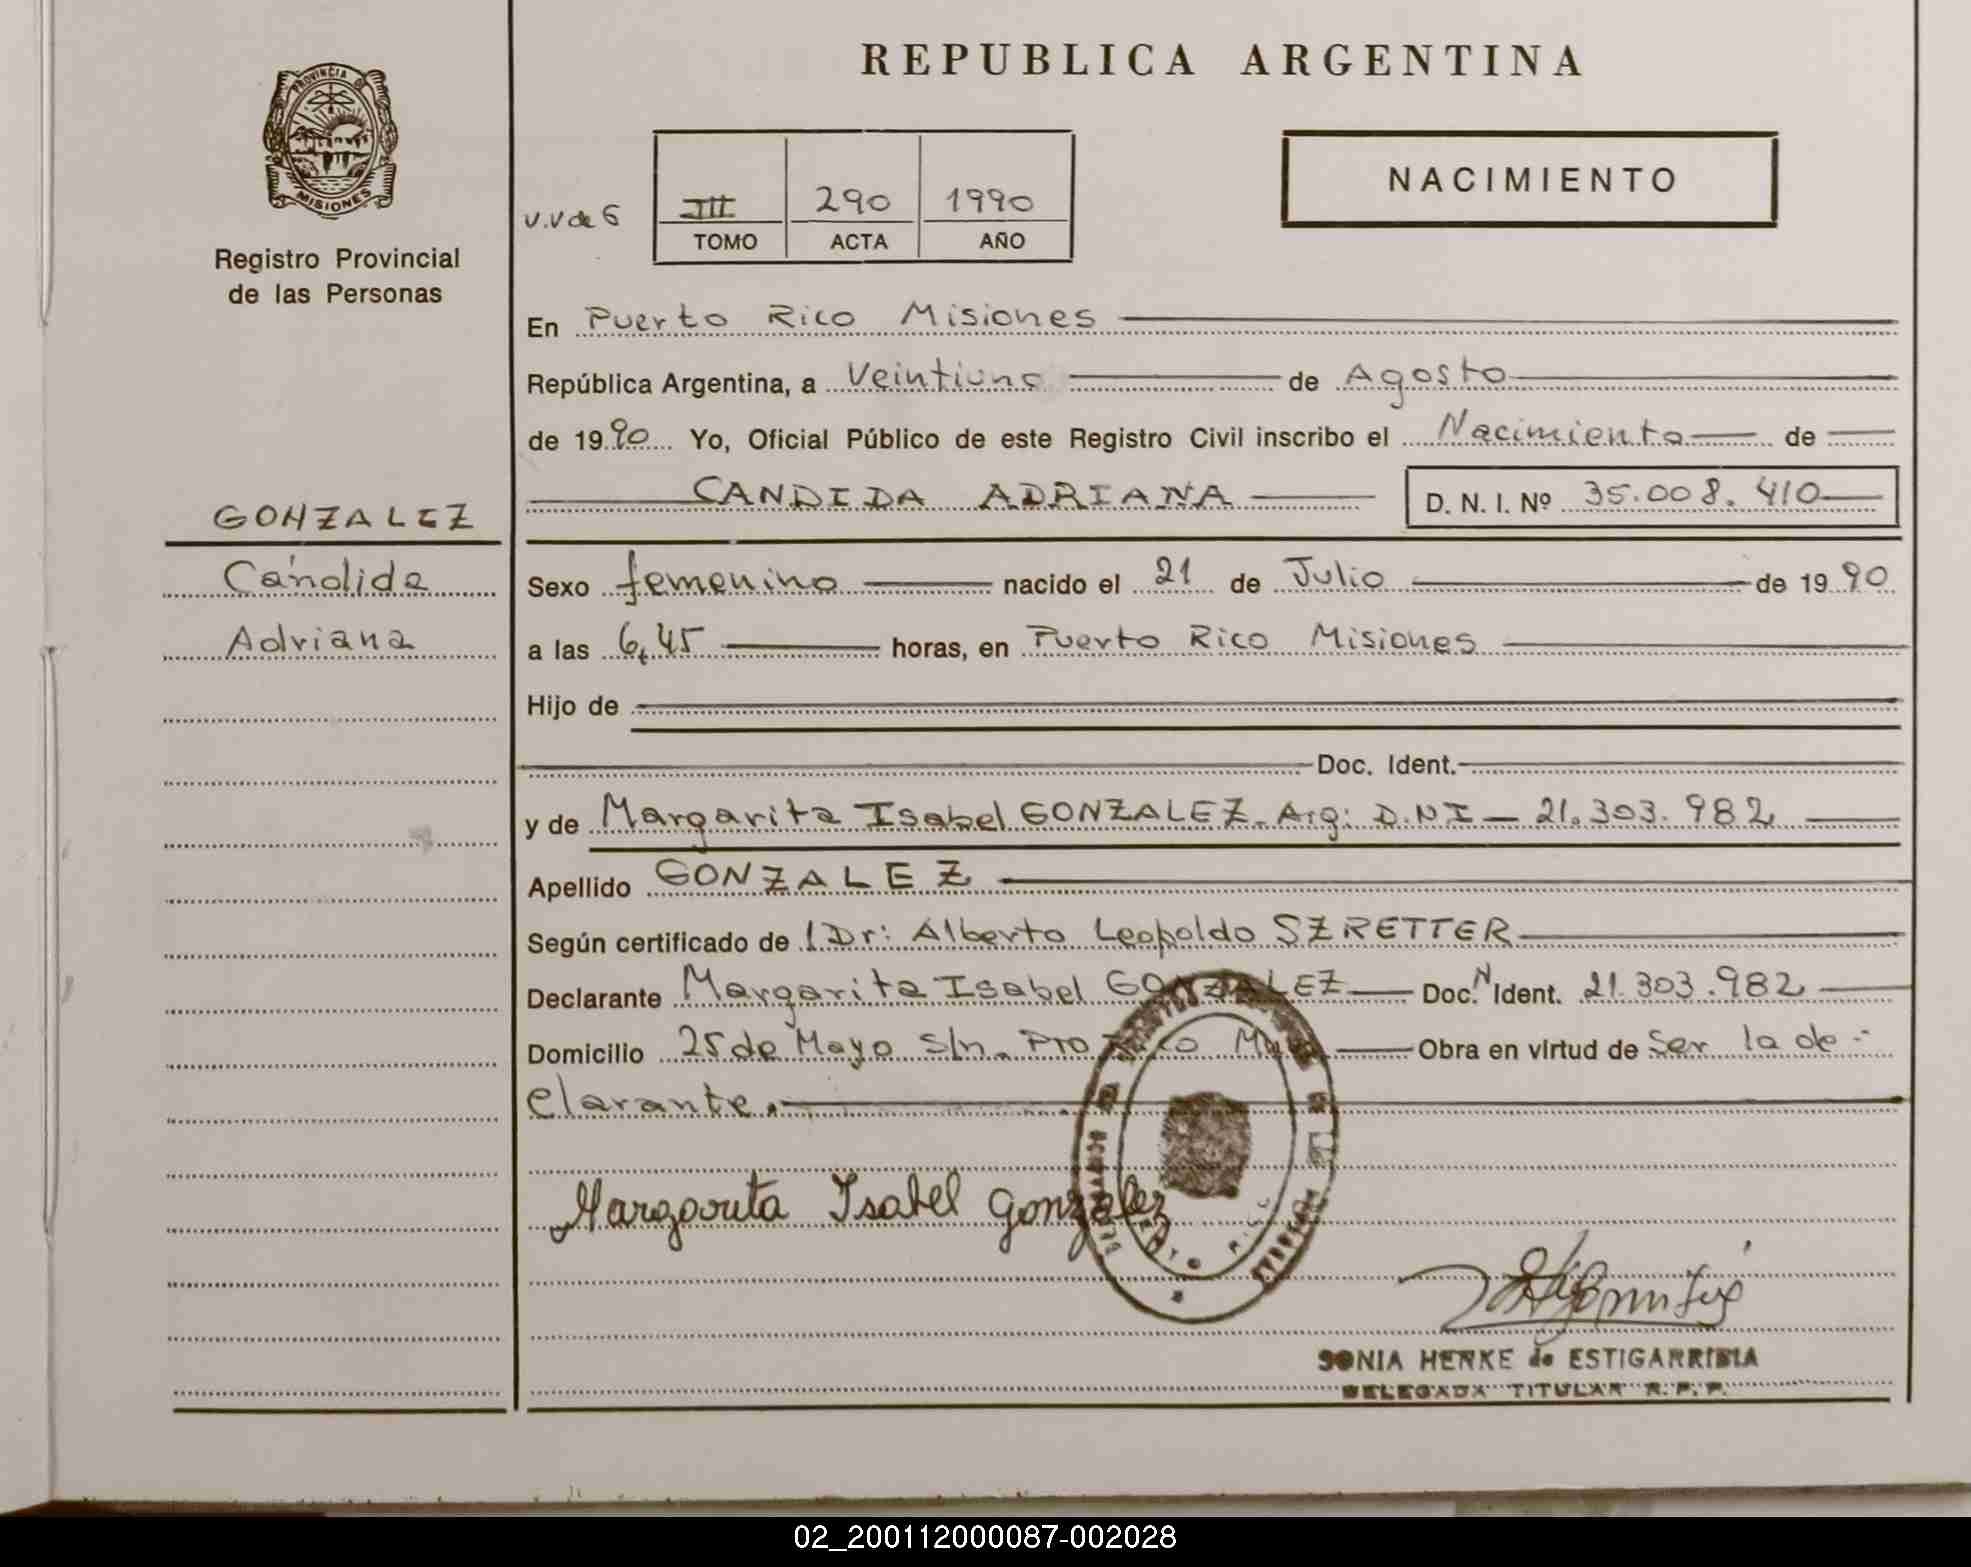 REPUBLICA ARGENTINA
PROVINCIA DE
MISIONES
Registro Provincial
de las Personas
v.v de 6
III 290 1990
TOMO ACTA AÑO
NACIMIENTO
En Puerto Rico Misiones
República Argentina, a Veintiuno de Agosto
de 1990 Yo, Oficial Público de este Registro Civil inscribo el Nacimiento de
CANDIDA ADRIANA D. N. I. Nº 35.008.410
GONZALEZ
Candida
Adriana
Sexo femenino nacido el 21 de Julio de 1990
a las 6,45 horas, en Puerto Rico Misiones
Hijo de
Doc. Ident.
y de Margarita Isabel GONZALEZ. Arg: D.N.I - 21.303.982
Apellido GONZALEZ
Según certificado de l Dr: Alberto Leopoldo SZRETTER
Declarante Margarita Isabel GONZALEZ Doc. N Ident. 21.303.982
Domicilio 25 de Mayo s/n. Pto Rico Obra en virtud de Ser la de-
clarante.
Margarita Isabel Gonzalez
SONIA HENKE de ESTIGARRIBIA
DELEGADA TITULAR R.P.P.
02_200112000087-002028